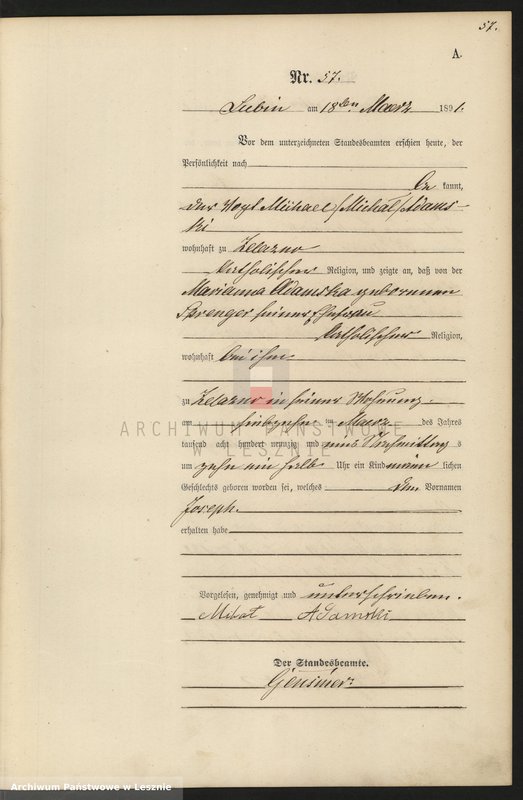 57.
A.
Nr. 57.
Lubin am 18ten Maerz 1891.
Vor dem unterzeichneten Standesbeamten erschien heute, der
Persönlichkeit nach
be kannt,
der Vogt Michael /Michal/ Adams-
ki
wohnhaft zu Zelazno
katholischer Religion, und zeigte an, daß von der
Marianna Adamska geborenen
Sprenger seiner Ehefrau
katholischer Religion,
wohnhaft bei ihm
zu Zelazno in seiner Wohnung
am siebzehn ten Maerz des Jahres
tausend acht hundert neunzig und eins Nachmittag s
um zehn ein halb Uhr ein Kind männ lichen
Geschlechts geboren worden sei, welches den Vornamen
Joseph
erhalten habe
Vorgelesen, genehmigt und unterschrieben.
Michał Adamski
Der Standesbeamte.
ARCHIWUM PAŃSTWOWE
W LESZNIE
Archiwum Państwowe w Lesznie